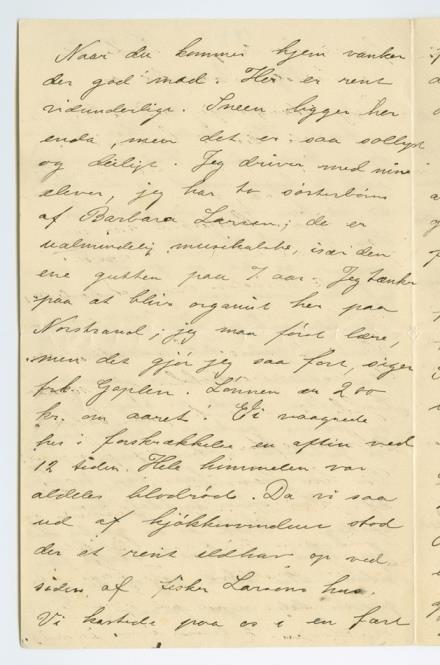 Naar du kommer hjem vanker
der god mad. Her er rent
vidunderligt. Sneen ligger her
enda, men det er saa sollyst
og deiligt. Jeg driver med mine
elever, jeg har to søsterbørn
af Barbara Larsen; de er
ualmindelig musikalske, især den
ene gutten paa 7 aar. Jeg tænker
paa at blive organist her paa
Norstrand; jeg maa først lære,
men det gjør jeg saa fort, siger
frk. Gaplen. Lønnen er 200
kr. om aaret! Vi vaagnede
her i forskrækkelse en aften ved
12 tiden. Hele himmelen var
aldeles blodrød. Da vi saa
ud af kjøkkenvinduet stod
der et rent ildhav op ved
siden af fisker Larsens hus.
Vi kastede paa os i en fart